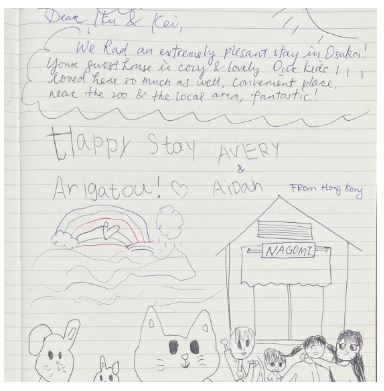 Dear Itu & Kei,
We had an extremely plesant stay in Osaka!
Your guest house is cozy & lovely. Our kids
loved here so much as well, convenient place,
near the zoo & the local area, fantastic!
Happy Stay AVERY
&
Arigatou! ♡ AiDan FROM Hong Kong
NAGOMI